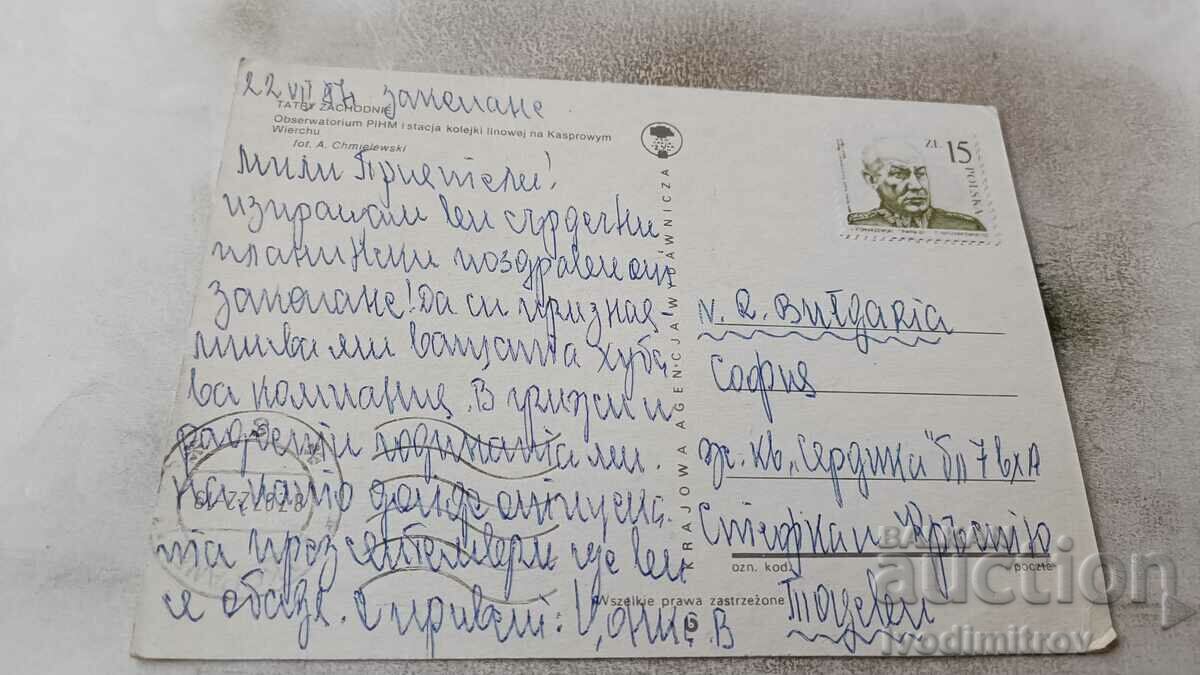 22 VII 87 Закопане
TATRY ZACHODNIE
Obserwatorium PIHM i stacja kolejki linowej na Kasprowym
Wierchu
fot. A. Chmielewski
Мили Приятели!
изпращам ви сърдечни
планински поздрави от
Закопане! Да си призная
липсва ми вашата хуба
ва компания. В грижи и
годината ми.
като дойде отпуска
та през септември ще ви
се обадя. С привет:
KRAJOWA AGENCJA WYDAWNICZA
ZŁ 15
POLSKA
N. R. BUŁGARIA
София
ж. кв. "Сердика" бл 7 вх А
Стефка и Кръстьо
ozn. kod.
poczta
Тоцеви
Wszelkie prawa zastrzeżone
БАЛКАН
auction
ivodimitrov